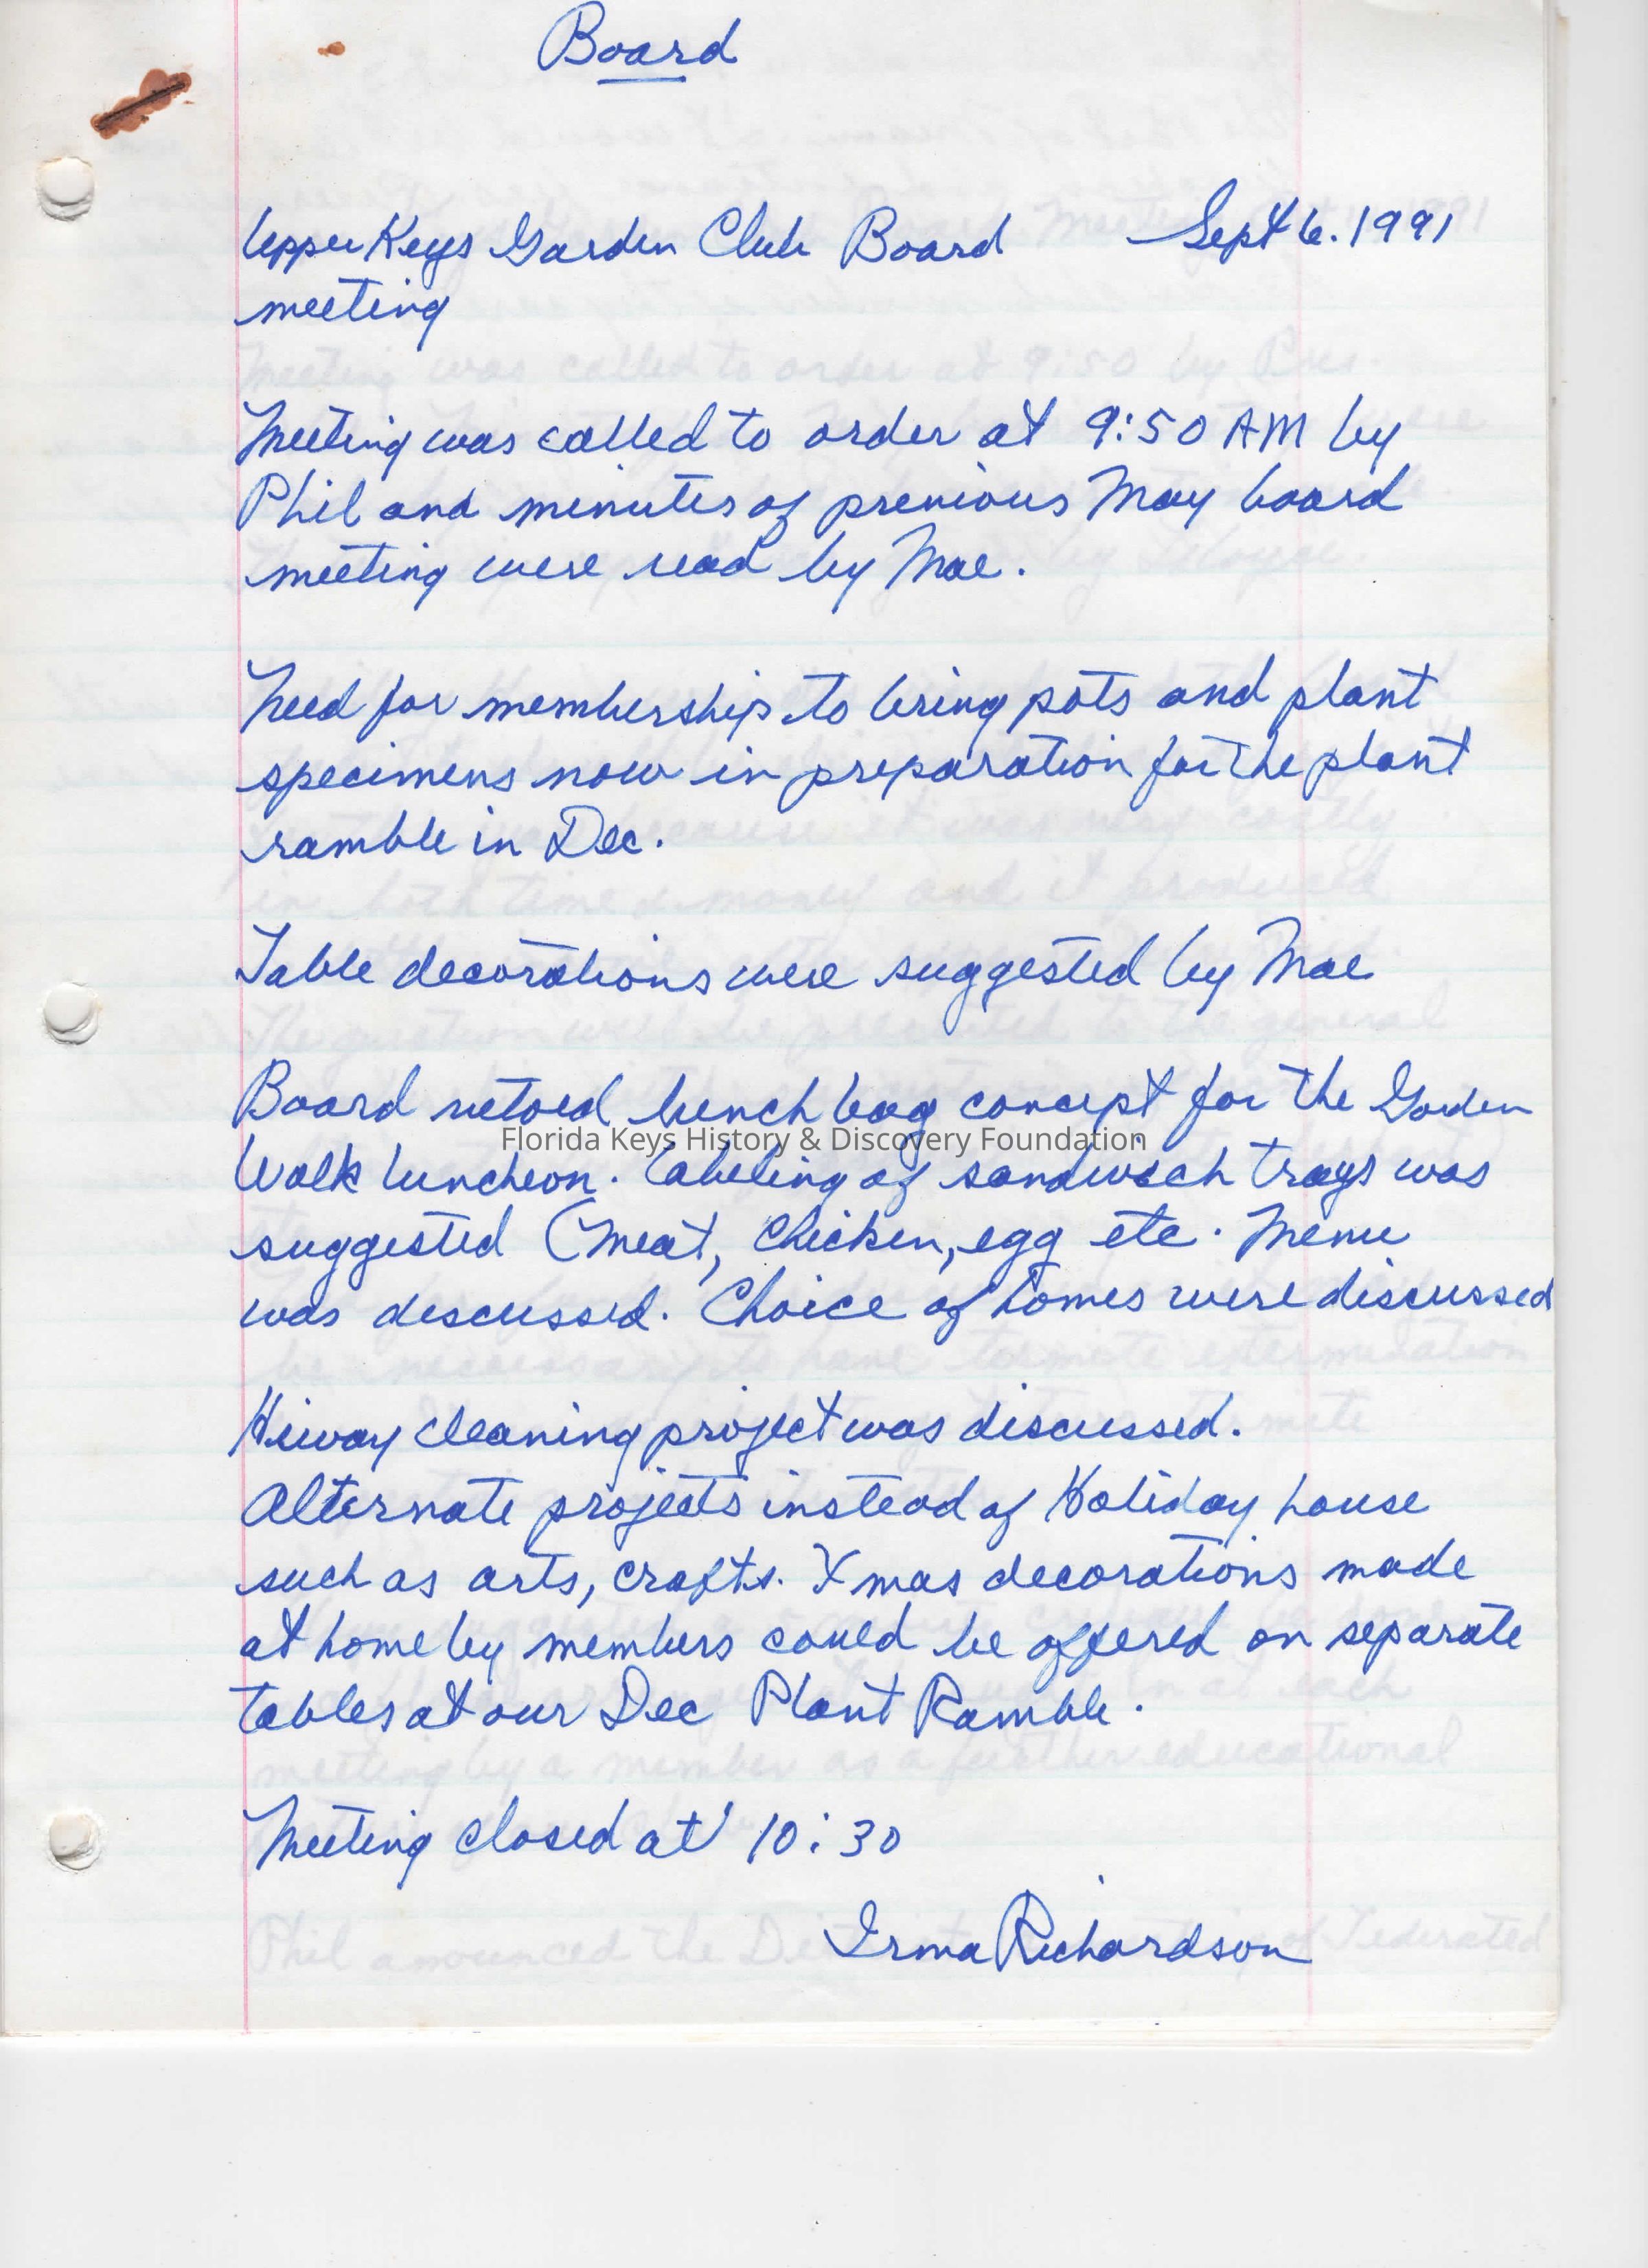 Board
Upper Keys Garden Club Board Sept 6. 1991
meeting
Meeting was called to order at 9:50 AM by
Phil and minutes of previous May board
meeting were read by Mae.
Need for membership to bring pots and plant
specimens now in preparation for the plant
ramble in Dec.
Table decorations were suggested by Mae
Board vetoed lunch bag concept for the Garden
Florida Keys History & Discovery Foundation
Walk luncheon. Labeling of sandwich trays was
suggested (Meat, Chicken, egg etc. Menu
was discussed. Choice of homes were discussed
Hiway cleaning project was discussed.
Alternate projects instead of Holiday house
such as arts, crafts. Xmas decorations made
at home by members could be offered on separate
tables at our Dec Plant Ramble.
Meeting closed at 10:30
Irma Richardson